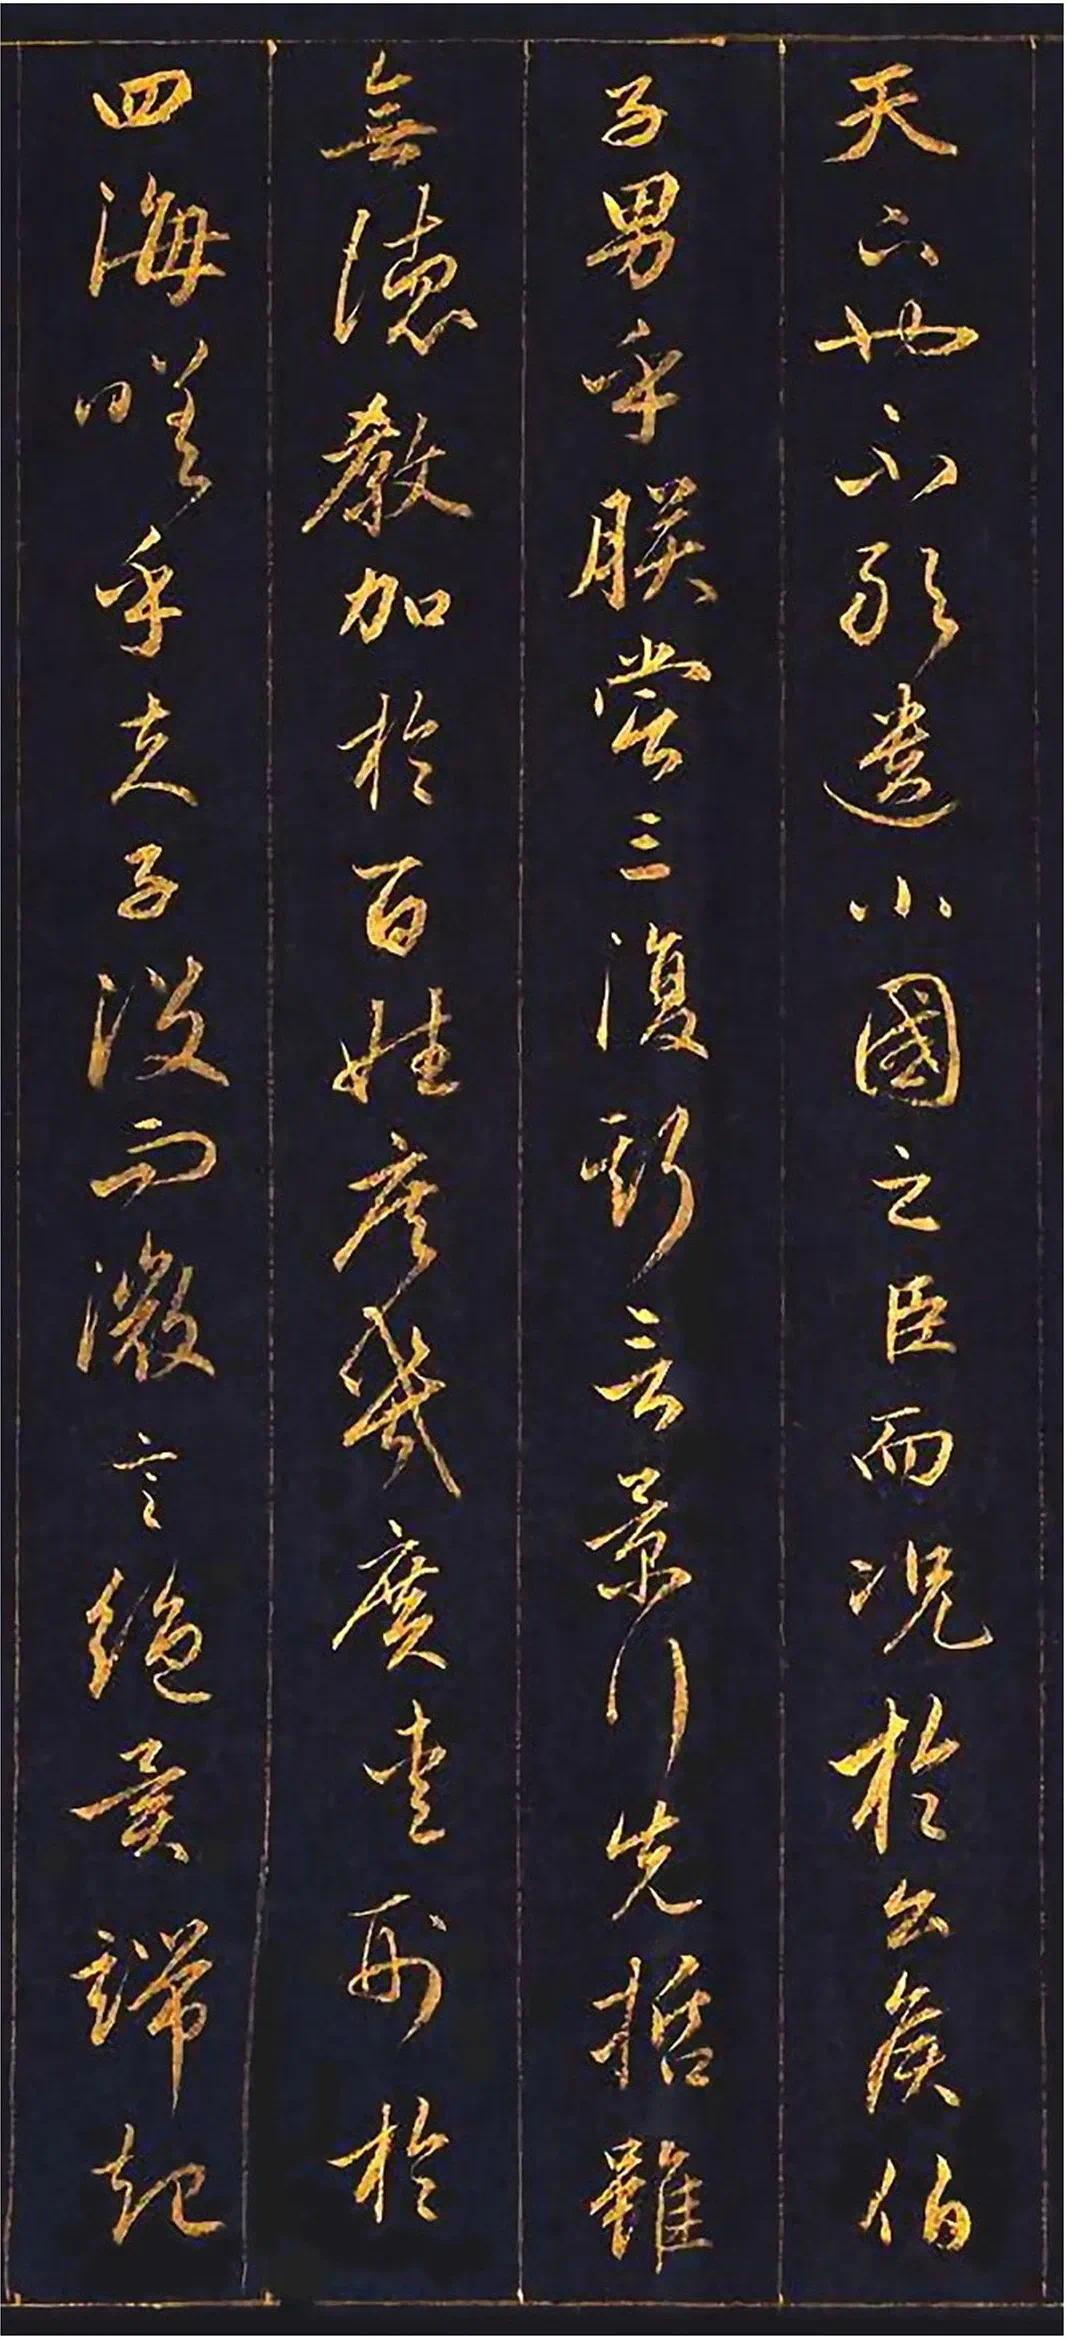 天下也不敢遺小國之臣而况於公侯伯
子男乎朕嘗三復斯言景行先哲雖
無德教加於百姓庶幾廣愛刑於
四海嗟乎夫子没而微言絕異端起